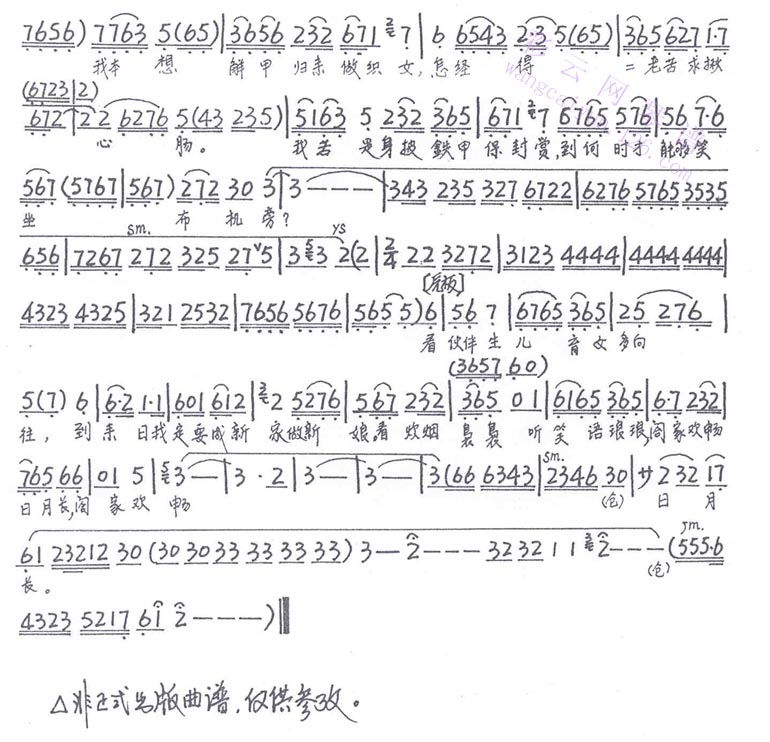 7656) 7763 5(65) | 3656 232 671 7 | 6 6543 2·3 5(65) | 365 627 1·7
我本 想 解甲 归来 做织 女, 怎经 得 二老苦求揪
(6723 | 2)
672 | 2 2 6276 5(43 235) | 5163 5 232 365 | 671 7 6765 576 | 56 7·6
心 肠。 我若 是身披 鉄甲 保封赏, 到何 时才 能够笑
567 (5767 | 567) 272 30 3 | 3 — — — | 343 235 327 6722 | 6276 5765 3535
坐 布 机旁?
sm. ys
656 | 7267 272 325 27 5 | 3 3 2 (2 | 2/4 22 3272 | 3123 4444 | 4444 4444 |
4323 4325 | 321 2532 | 7656 5676 | 565 5) 6 | 56 7 | 6765 365 | 25 276 |
看 伙伴 生 儿 育女 多向
(3657 60)
5(7) 6 | 6·2 1·1 | 601 612 | 2 5276 | 567 232 | 365 01 | 6165 365 | 6·7 232 |
往, 到 来 日我 是要成新 家做新 娘, 看 炊烟 袅袅 听 笑 语琅琅, 阖家欢畅
sm.
765 66 | 01 5 | 3 — | 3 · 2 | 3 — | 3 — | 3(66 6343 | 2346 30 | サ 2 32 17
日月长, 阖 家欢 畅 (仓) 日 月
61 23212 30 (30 30 33 33 33 33 33) 3 — 2 — — — 32 32 1 1 2 — — — (555·6
长。 (仓)
4323 5217 61 2 — — — )
△非正式出版曲谱,仅供参攷。